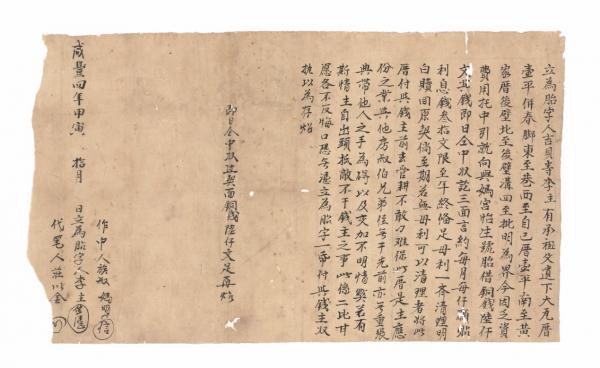 立為胎字人吉貝寺李主有承祖父遺下大瓦厝
壹平併春脚東至巷西至自己厝壹平南至黃
家厝後壁北至後壁溝四至批明為界今因乏資
費用托中引就向與媽宮怡生號胎借銅錢陸仟
文其錢即日仝中收訖三面言約每月每仟願貼
利息錢叁拾文限至年終俻足母利一齊清還明
白贖回原契倘至期若無母利可以清還者將此
厝付與錢主前去管耕不敢刁难保此厝是主應
份之業與他房叔伯兄弟侄等無干先前亦無重張
典帶他人之手為碍以及交加不明情獘若有
斯情主自出頭抵敵不干錢主之事此係二比甘
愿各不反悔口恐無憑立為胎字一帋付與錢主收
執以為存炤
即日仝中收过契面銅錢陸仟文足再炤
咸豐四年甲寅 拾月 日立為胎字人李主
作中人族叔媽明
代笔人莊